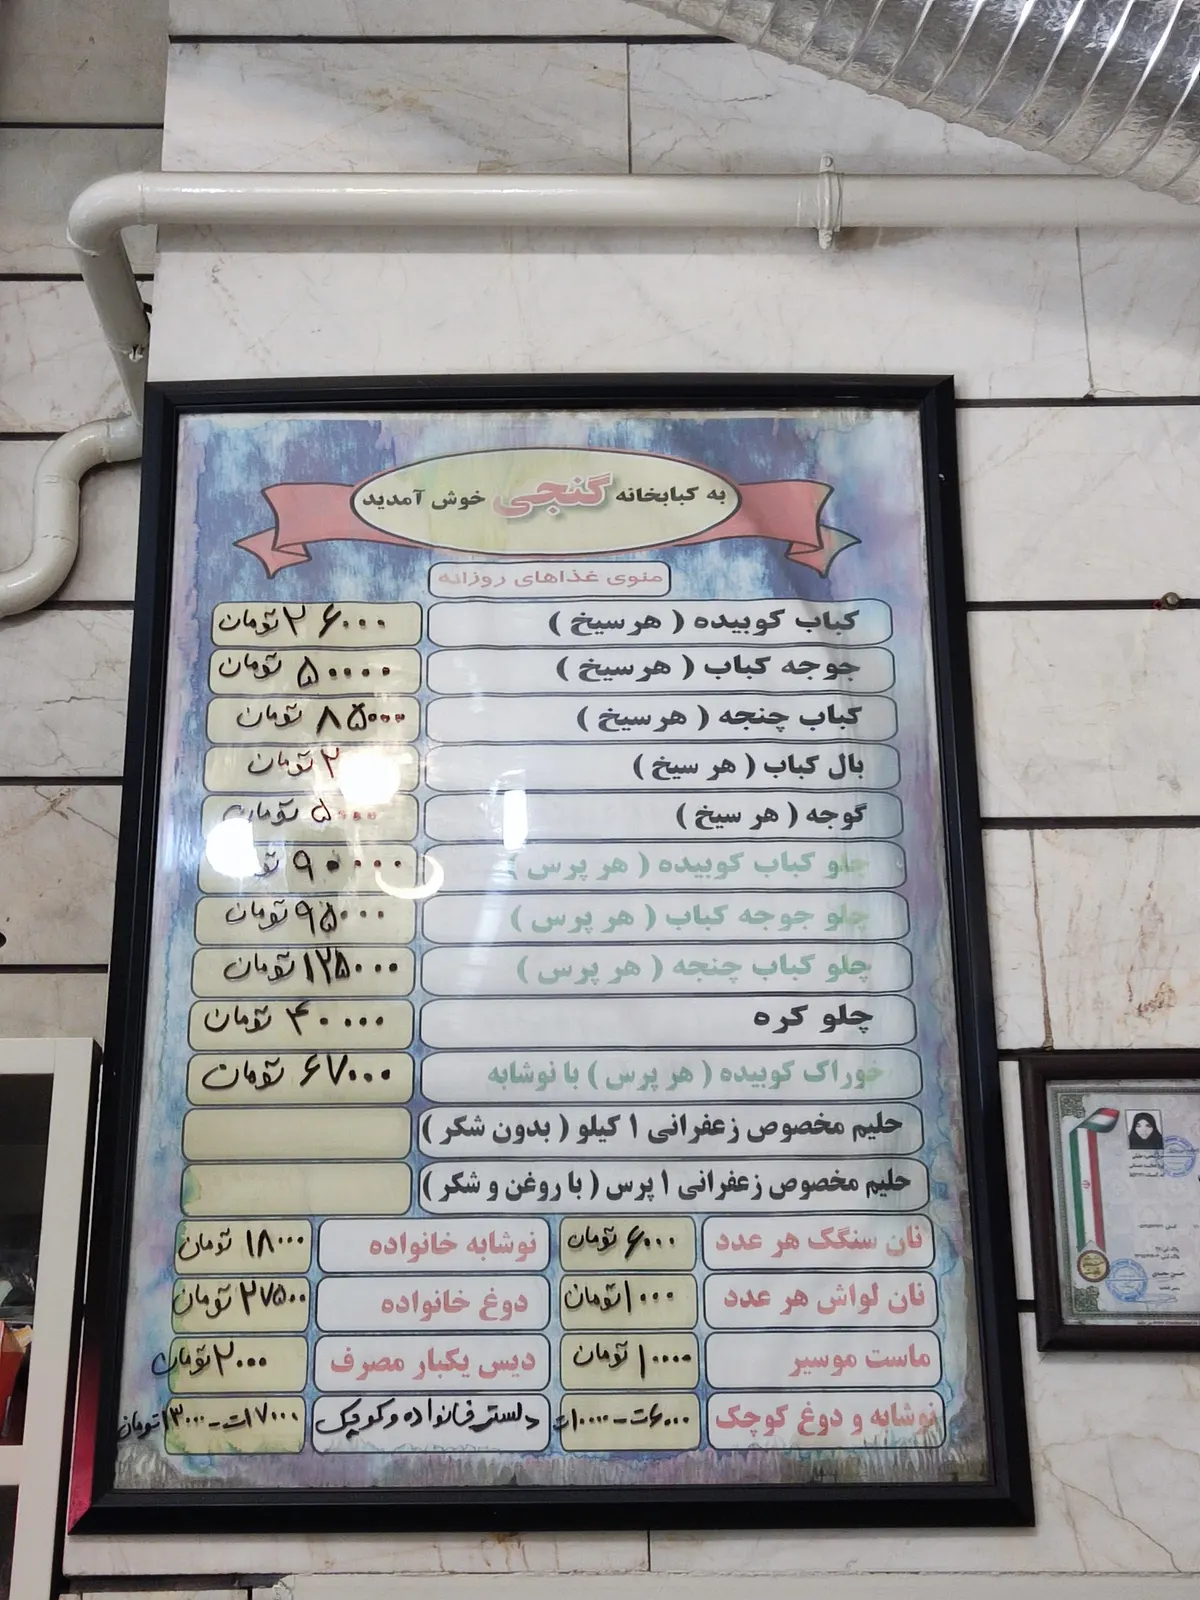 به کبابخانه گنجی خوش آمدید
منوی غذاهای روزانه
کباب کوبیده ( هر سیخ ) ۲۶۰۰۰ تومان
جوجه کباب ( هر سیخ ) ۵۰۰۰۰ تومان
کباب چنجه ( هر سیخ ) ۸۵۰۰۰ تومان
بال کباب ( هر سیخ ) تومان
گوجه ( هر سیخ ) ۵۰۰۰ تومان
چلو کباب کوبیده ( هر پرس )
چلو جوجه کباب ( هر پرس ) ۹۵۰۰۰ تومان
چلو کباب چنجه ( هر پرس ) ۱۲۵۰۰۰ تومان
چلو کره ۴۰۰۰۰ تومان
خوراک کوبیده ( هر پرس ) با نوشابه ۶۷۰۰۰ تومان
حلیم مخصوص زعفرانی ۱ کیلو ( بدون شکر )
حلیم مخصوص زعفرانی ۱ پرس ( با روغن و شکر )
نان سنگک هر عدد ۶۰۰۰ تومان نوشابه خانواده ۱۸۰۰۰ تومان
نان لواش هر عدد ۱۰۰۰ تومان دوغ خانواده ۲۷۵۰۰ تومان
ماست موسیر ۱۰۰۰۰ تومان دیس یکبار مصرف ۲۰۰۰ تومان
نوشابه و دوغ کوچک ۶۰۰۰ت-۱۰۰۰۰ت دلستر خانواده و کوچک ۱۷۰۰۰ت-۱۳۰۰۰تومان